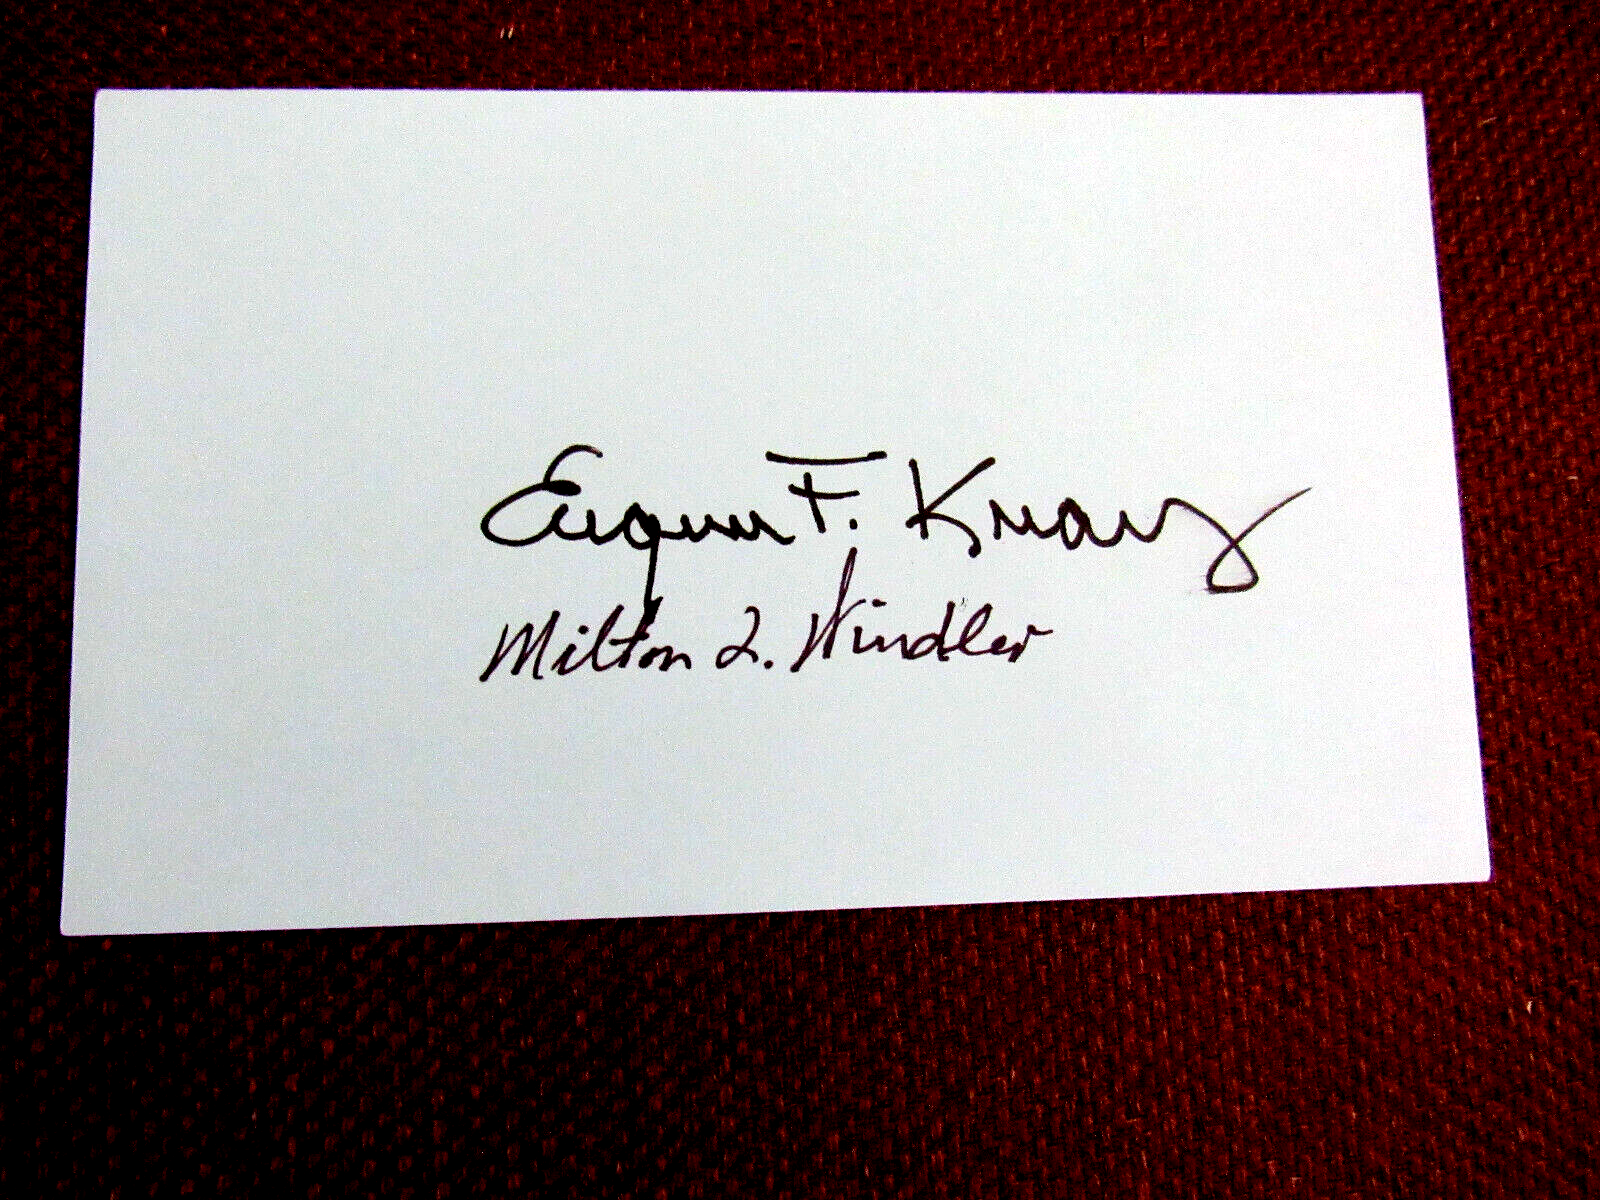 Eugene F. Kranz
Milton L. Windler